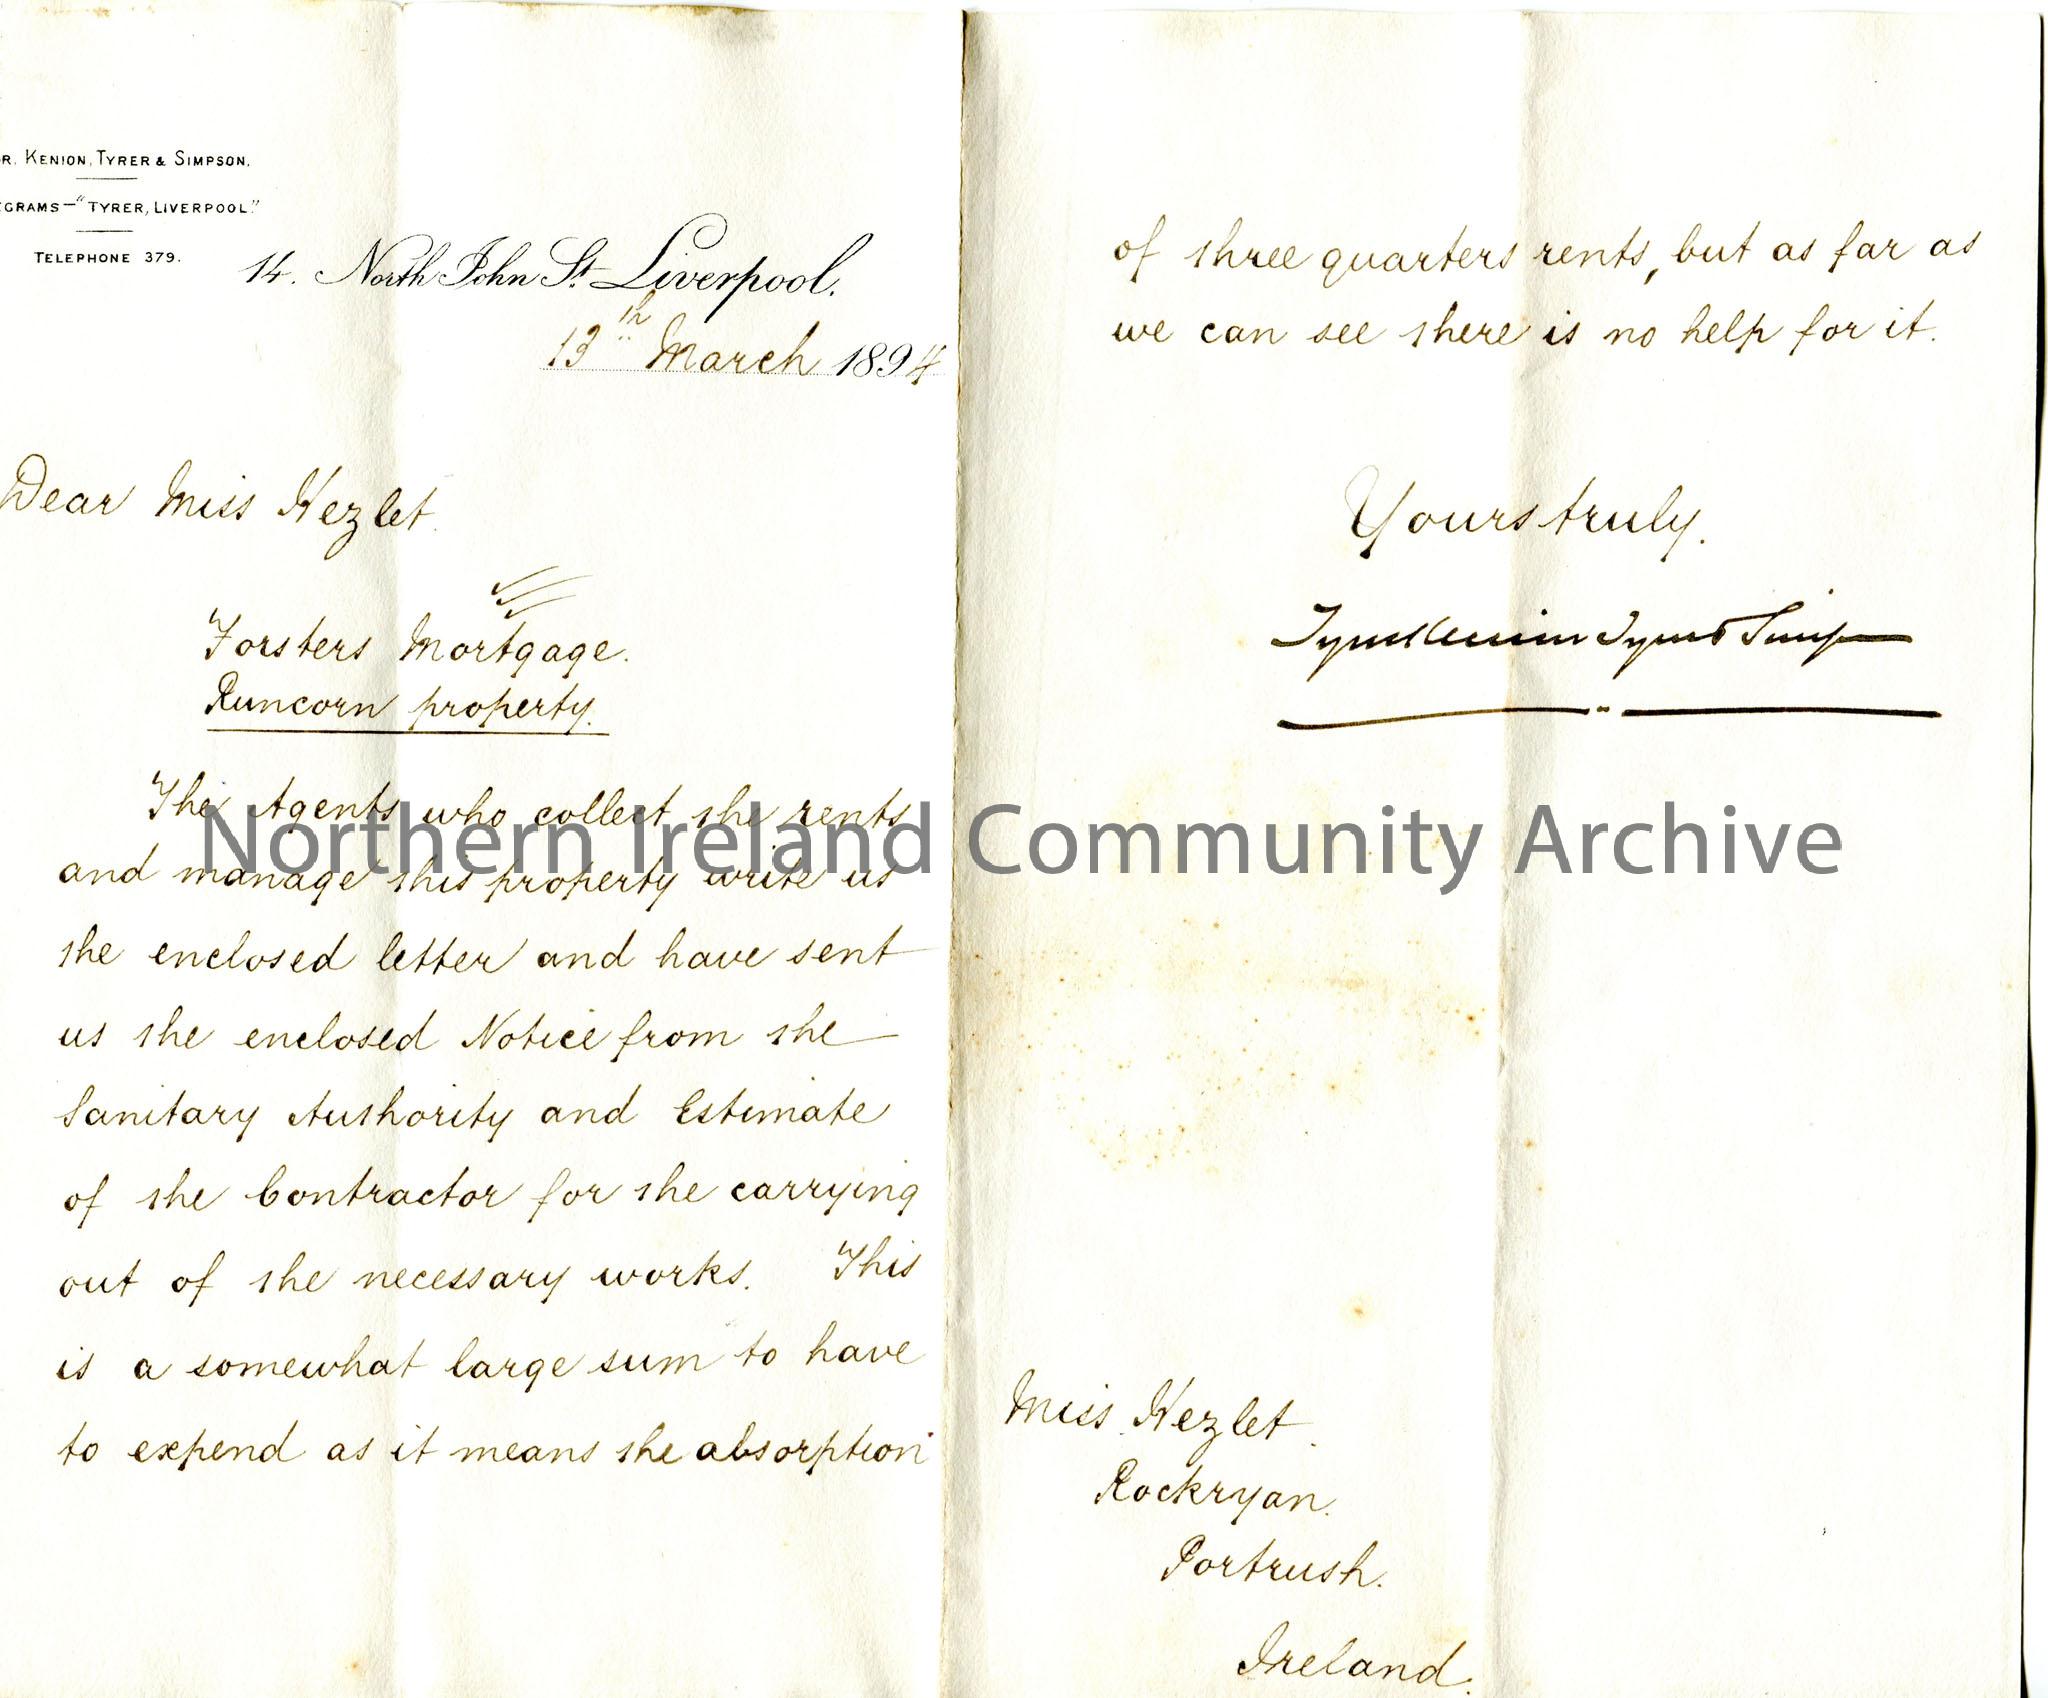 R, KENION, TYRER & SIMPSON.
EGRAMS—"TYRER, LIVERPOOL."
TELEPHONE 379.
14. North John St. Liverpool.
13th March 1894
Dear Miss Hezlet.
Forsters Mortgage.
Runcorn property.
The Agents who collect the rents
and manage this property write us
the enclosed letter and have sent
us the enclosed Notice from the
Sanitary Authority and Estimate
of the Contractor for the carrying
out of the necessary works. This
is a somewhat large sum to have
to expend as it means the absorption
of three quarters rents, but as far as
we can see there is no help for it.
Yours truly.
Kenion Tyrer & Simpson
Miss Hezlet.
Rockryan.
Portrush.
Ireland.
Northern Ireland Community Archive